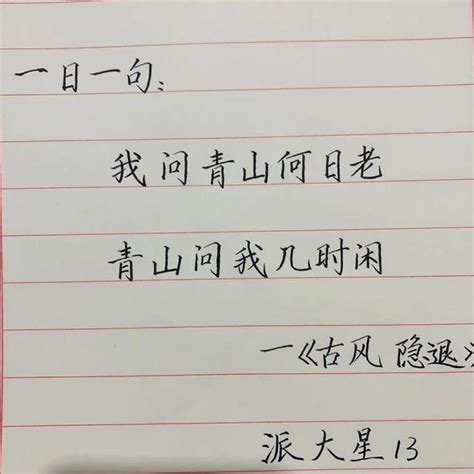 一日一句：
我问青山何日老
青山问我几时闲
—《古风 隐退》
派大星 13